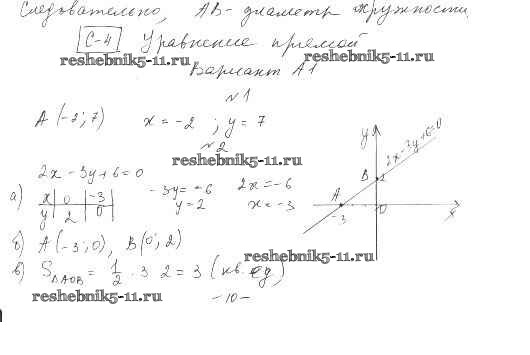 Следовательно, AB - диаметр окружности.
С-4 Уравнение прямой
reshebnik5-11.ru reshebnik5-11.ru
Вариант А1
№1
A(-2; 7) x = -2 ; y = 7
№2
reshebnik5-11.ru
2x - 3y + 6 = 0
а) x 0 -3
y 2 0
-3y = -6 2x = -6
y = 2 x = -3
б) A(-3; 0), B(0; 2)
reshebnik5-11.ru
в) S△AOB = 1/2 · 3 · 2 = 3 (кв. ед)
reshebnik5-11.ru
-10-
y
2x-3y+6=0
B 2
A
-3 0 x